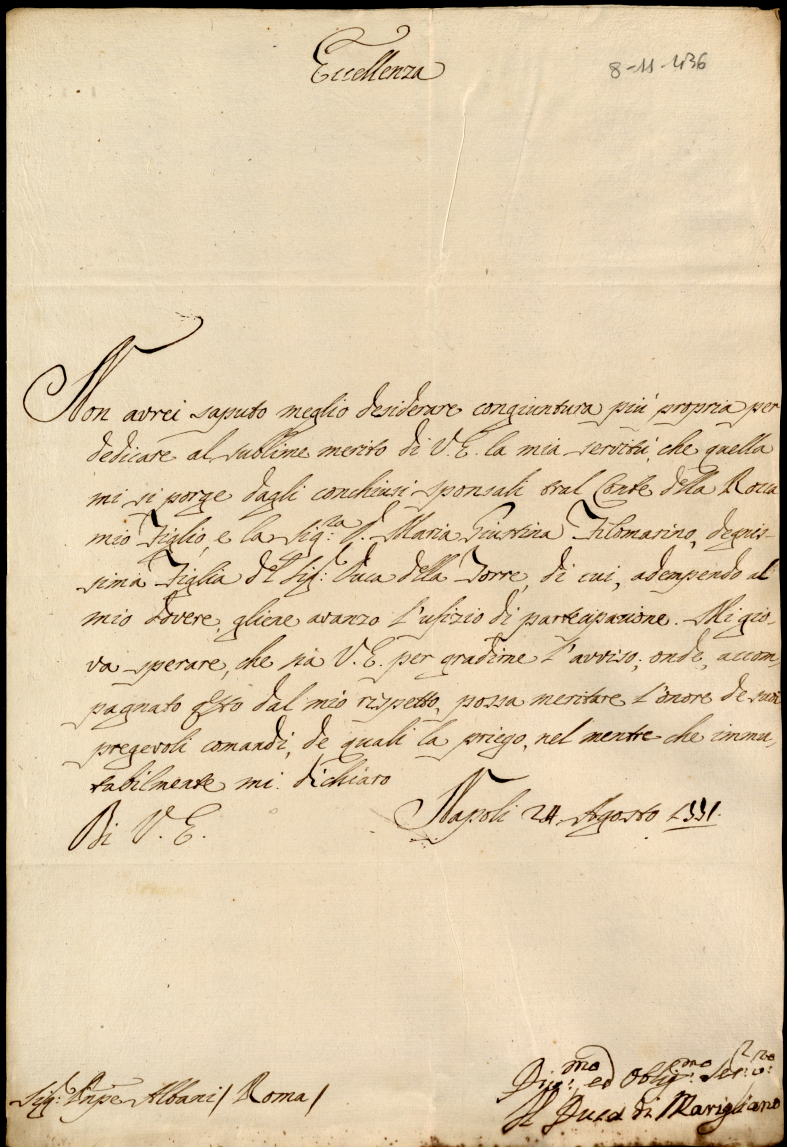 Eccellenza
8-11-436
Non avrei saputo meglio desiderare congiuntura più propria per
dedicare al sublime merito di V. E. la mia servitù, che quella
mi si porge dagli conchiusi sponsali tral Conte della Rocca
mio Figlio, e la Sig.ra D. Maria Giustina Filomarino, degnis-
sima Figlia del Sig.r Duca della Torre, di cui, adempendo al
mio dovere, gliene avanzo l'ufizio di partecipazione. Mi gio-
va sperare, che sia V. E. per gradirne l'avviso; onde, accom-
pagnato questo dal mio rispetto, possa meritare l'onore de suoi
pregevoli comandi, de quali la priego, nel mentre che immu-
tabilmente mi dichiaro
Di V. E. Napoli 24 Agosto
Sig.r Pnpe Albani / Roma /
Div.mo ed Oblig.mo Ser.re
Il Duca di Marigliano